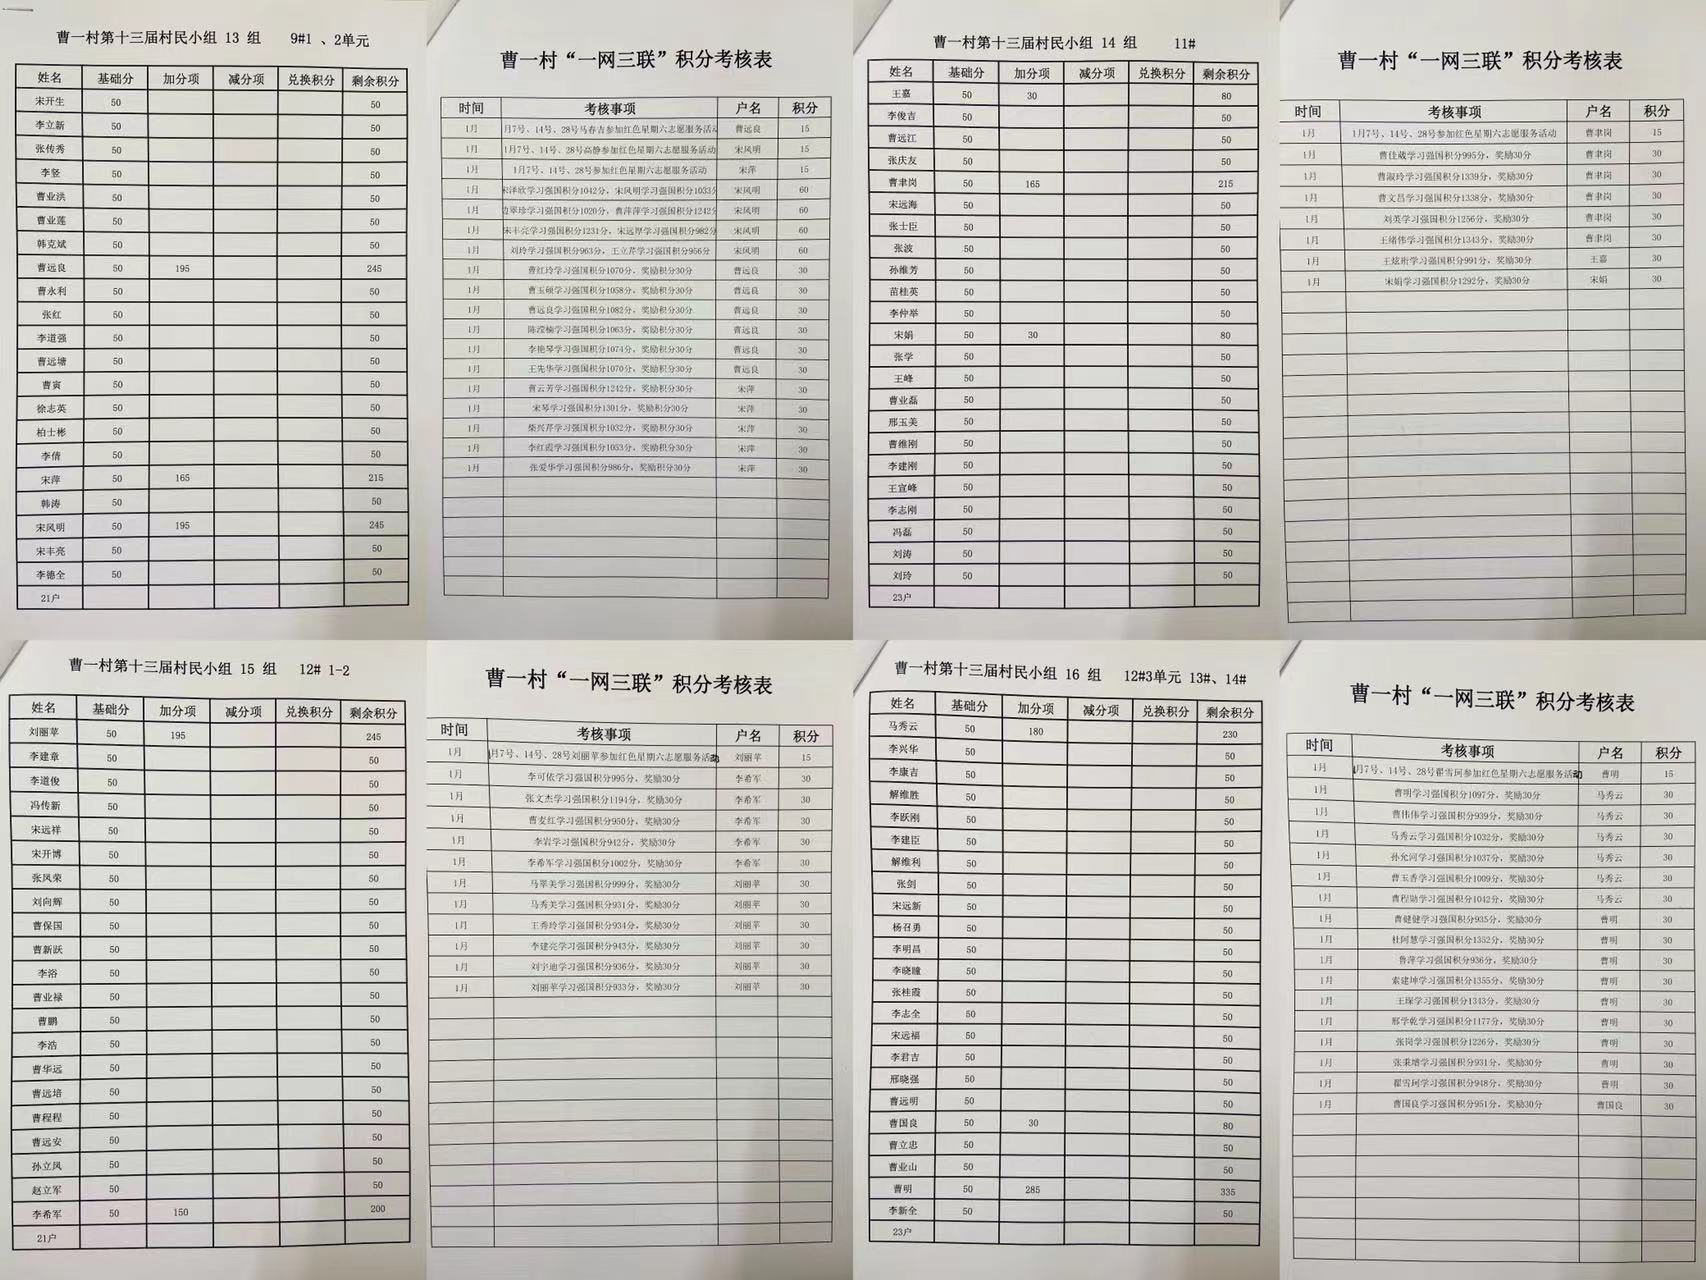 曹一村第十三届村民小组 13 组 9#1 、2单元
姓名 基础分 加分项 减分项 兑换积分 剩余积分
宋开生 50 50
李立新 50 50
张传秀 50 50
李竖 50 50
曹业洪 50 50
曹业莲 50 50
韩克斌 50 50
曹远良 50 195 245
曹永利 50 50
张红 50 50
李道强 50 50
曹远塘 50 50
曹寅 50 50
徐志英 50 50
柏士彬 50 50
李倩 50 50
宋萍 50 165 215
韩涛 50 50
宋凤明 50 195 245
宋丰亮 50 50
李德全 50 50
21户
曹一村“一网三联”积分考核表
时间 考核事项 户名 积分
1月 月7号、14号、28号马春吉参加红色星期六志愿服务活动 曹远良 15
1月 1月7号、14号、28号高静参加红色星期六志愿服务活动 宋凤明 15
1月 1月7号、14号、28号参加红色星期六志愿服务活动 宋萍 15
1月 宋泽欣学习强国积分1042分，宋凤明学习强国积分1033分 宋凤明 60
1月 边翠珍学习强国积分1020分，曹萍萍学习强国积分1242分 宋凤明 60
1月 宋丰亮学习强国积分1231分，宋远厚学习强国积分982分 宋凤明 60
1月 刘玲学习强国积分963分，王立芹学习强国积分956分 宋凤明 60
1月 曹红玲学习强国积分1070分，奖励积分30分 曹远良 30
1月 曹玉硕学习强国积分1058分，奖励积分30分 曹远良 30
1月 曹远良学习强国积分1082分，奖励积分30分 曹远良 30
1月 陈滢楠学习强国积分1063分，奖励积分30分 曹远良 30
1月 李艳琴学习强国积分1074分，奖励积分30分 曹远良 30
1月 王先华学习强国积分1070分，奖励积分30分 曹远良 30
1月 曹云芳学习强国积分1242分，奖励积分30分 宋萍 30
1月 宋琴学习强国积分1301分，奖励积分30分 宋萍 30
1月 柴兴芹学习强国积分1032分，奖励积分30分 宋萍 30
1月 李红霞学习强国积分1053分，奖励积分30分 宋萍 30
1月 张爱华学习强国积分986分，奖励积分30分 宋萍 30
曹一村第十三届村民小组 14 组 11#
姓名 基础分 加分项 减分项 兑换积分 剩余积分
王嘉 50 30 80
李俊吉 50 50
曹远江 50 50
张庆友 50 50
曹聿岗 50 165 215
宋远海 50 50
张士臣 50 50
张波 50 50
孙维芳 50 50
苗桂英 50 50
李仲举 50 50
宋娟 50 30 80
张学 50 50
王峰 50 50
曹业磊 50 50
邢玉美 50 50
曹维刚 50 50
李建刚 50 50
王宣峰 50 50
李志刚 50 50
冯磊 50 50
刘涛 50 50
刘玲 50 50
23户
曹一村“一网三联”积分考核表
时间 考核事项 户名 积分
1月 1月7号、14号、28号参加红色星期六志愿服务活动 曹聿岗 15
1月 曹佳葳学习强国积分995分，奖励30分 曹聿岗 30
1月 曹淑玲学习强国积分1339分，奖励30分 曹聿岗 30
1月 曹文昌学习强国积分1338分，奖励30分 曹聿岗 30
1月 刘英学习强国积分1256分，奖励30分 曹聿岗 30
1月 王绪伟学习强国积分1343分，奖励30分 曹聿岗 30
1月 王炫珩学习强国积分991分，奖励30分 王嘉 30
1月 宋娟学习强国积分1292分，奖励30分 宋娟 30
曹一村第十三届村民小组 15 组 12# 1-2
姓名 基础分 加分项 减分项 兑换积分 剩余积分
刘丽苹 50 195 245
李建章 50 50
李道俊 50 50
冯传新 50 50
宋远祥 50 50
宋开博 50 50
张凤荣 50 50
刘向辉 50 50
曹保国 50 50
曹新跃 50 50
李浴 50 50
曹业禄 50 50
曹鹏 50 50
李浩 50 50
曹华远 50 50
曹远培 50 50
曹程程 50 50
曹远安 50 50
孙立凤 50 50
赵立军 50 50
李希军 50 150 200
21户
曹一村“一网三联”积分考核表
时间 考核事项 户名 积分
1月 月7号、14号、28号刘丽苹参加红色星期六志愿服务活动 刘丽苹 15
1月 李可依学习强国积分995分，奖励30分 李希军 30
1月 张文杰学习强国积分1194分，奖励30分 李希军 30
1月 曹友红学习强国积分950分，奖励30分 李希军 30
1月 李岩学习强国积分942分，奖励30分 李希军 30
1月 李希军学习强国积分1002分，奖励30分 李希军 30
1月 马翠美学习强国积分999分，奖励30分 刘丽苹 30
1月 马秀美学习强国积分931分，奖励30分 刘丽苹 30
1月 王秀玲学习强国积分934分，奖励30分 刘丽苹 30
1月 李建亮学习强国积分943分，奖励30分 刘丽苹 30
1月 刘宇迪学习强国积分936分，奖励30分 刘丽苹 30
1月 刘丽苹学习强国积分933分，奖励30分 刘丽苹 30
曹一村第十三届村民小组 16 组 12#3单元 13#、14#
姓名 基础分 加分项 减分项 兑换积分 剩余积分
马秀云 50 180 230
李兴华 50 50
李康吉 50 50
解维胜 50 50
李跃刚 50 50
李建臣 50 50
解维利 50 50
张剑 50 50
宋远新 50 50
杨召勇 50 50
李明昌 50 50
李晓瞳 50 50
张桂霞 50 50
李志全 50 50
宋远福 50 50
李君吉 50 50
邢晓强 50 50
曹远明 50 50
曹国良 50 30 80
曹立忠 50 50
曹业山 50 50
曹明 50 285 335
李新全 50 50
23户
曹一村“一网三联”积分考核表
时间 考核事项 户名 积分
1月 月7号、14号、28号翟雪珂参加红色星期六志愿服务活动 曹明 15
1月 曹明学习强国积分1097分，奖励30分 马秀云 30
1月 曹伟伟学习强国积分939分，奖励30分 马秀云 30
1月 马秀云学习强国积分1032分，奖励30分 马秀云 30
1月 孙允河学习强国积分1037分，奖励30分 马秀云 30
1月 曹玉香学习强国积分1009分，奖励30分 马秀云 30
1月 曹程勋学习强国积分1042分，奖励30分 马秀云 30
1月 曹健健学习强国积分935分，奖励30分 曹明 30
1月 杜阿慧学习强国积分1352分，奖励30分 曹明 30
1月 鲁萍学习强国积分936分，奖励30分 曹明 30
1月 索建坤学习强国积分1355分，奖励30分 曹明 30
1月 王琛学习强国积分1343分，奖励30分 曹明 30
1月 邢学乾学习强国积分1177分，奖励30分 曹明 30
1月 张岗学习强国积分1226分，奖励30分 曹明 30
1月 张秉增学习强国积分931分，奖励30分 曹明 30
1月 翟雪珂学习强国积分948分，奖励30分 曹明 30
1月 曹国良学习强国积分951分，奖励30分 曹国良 30